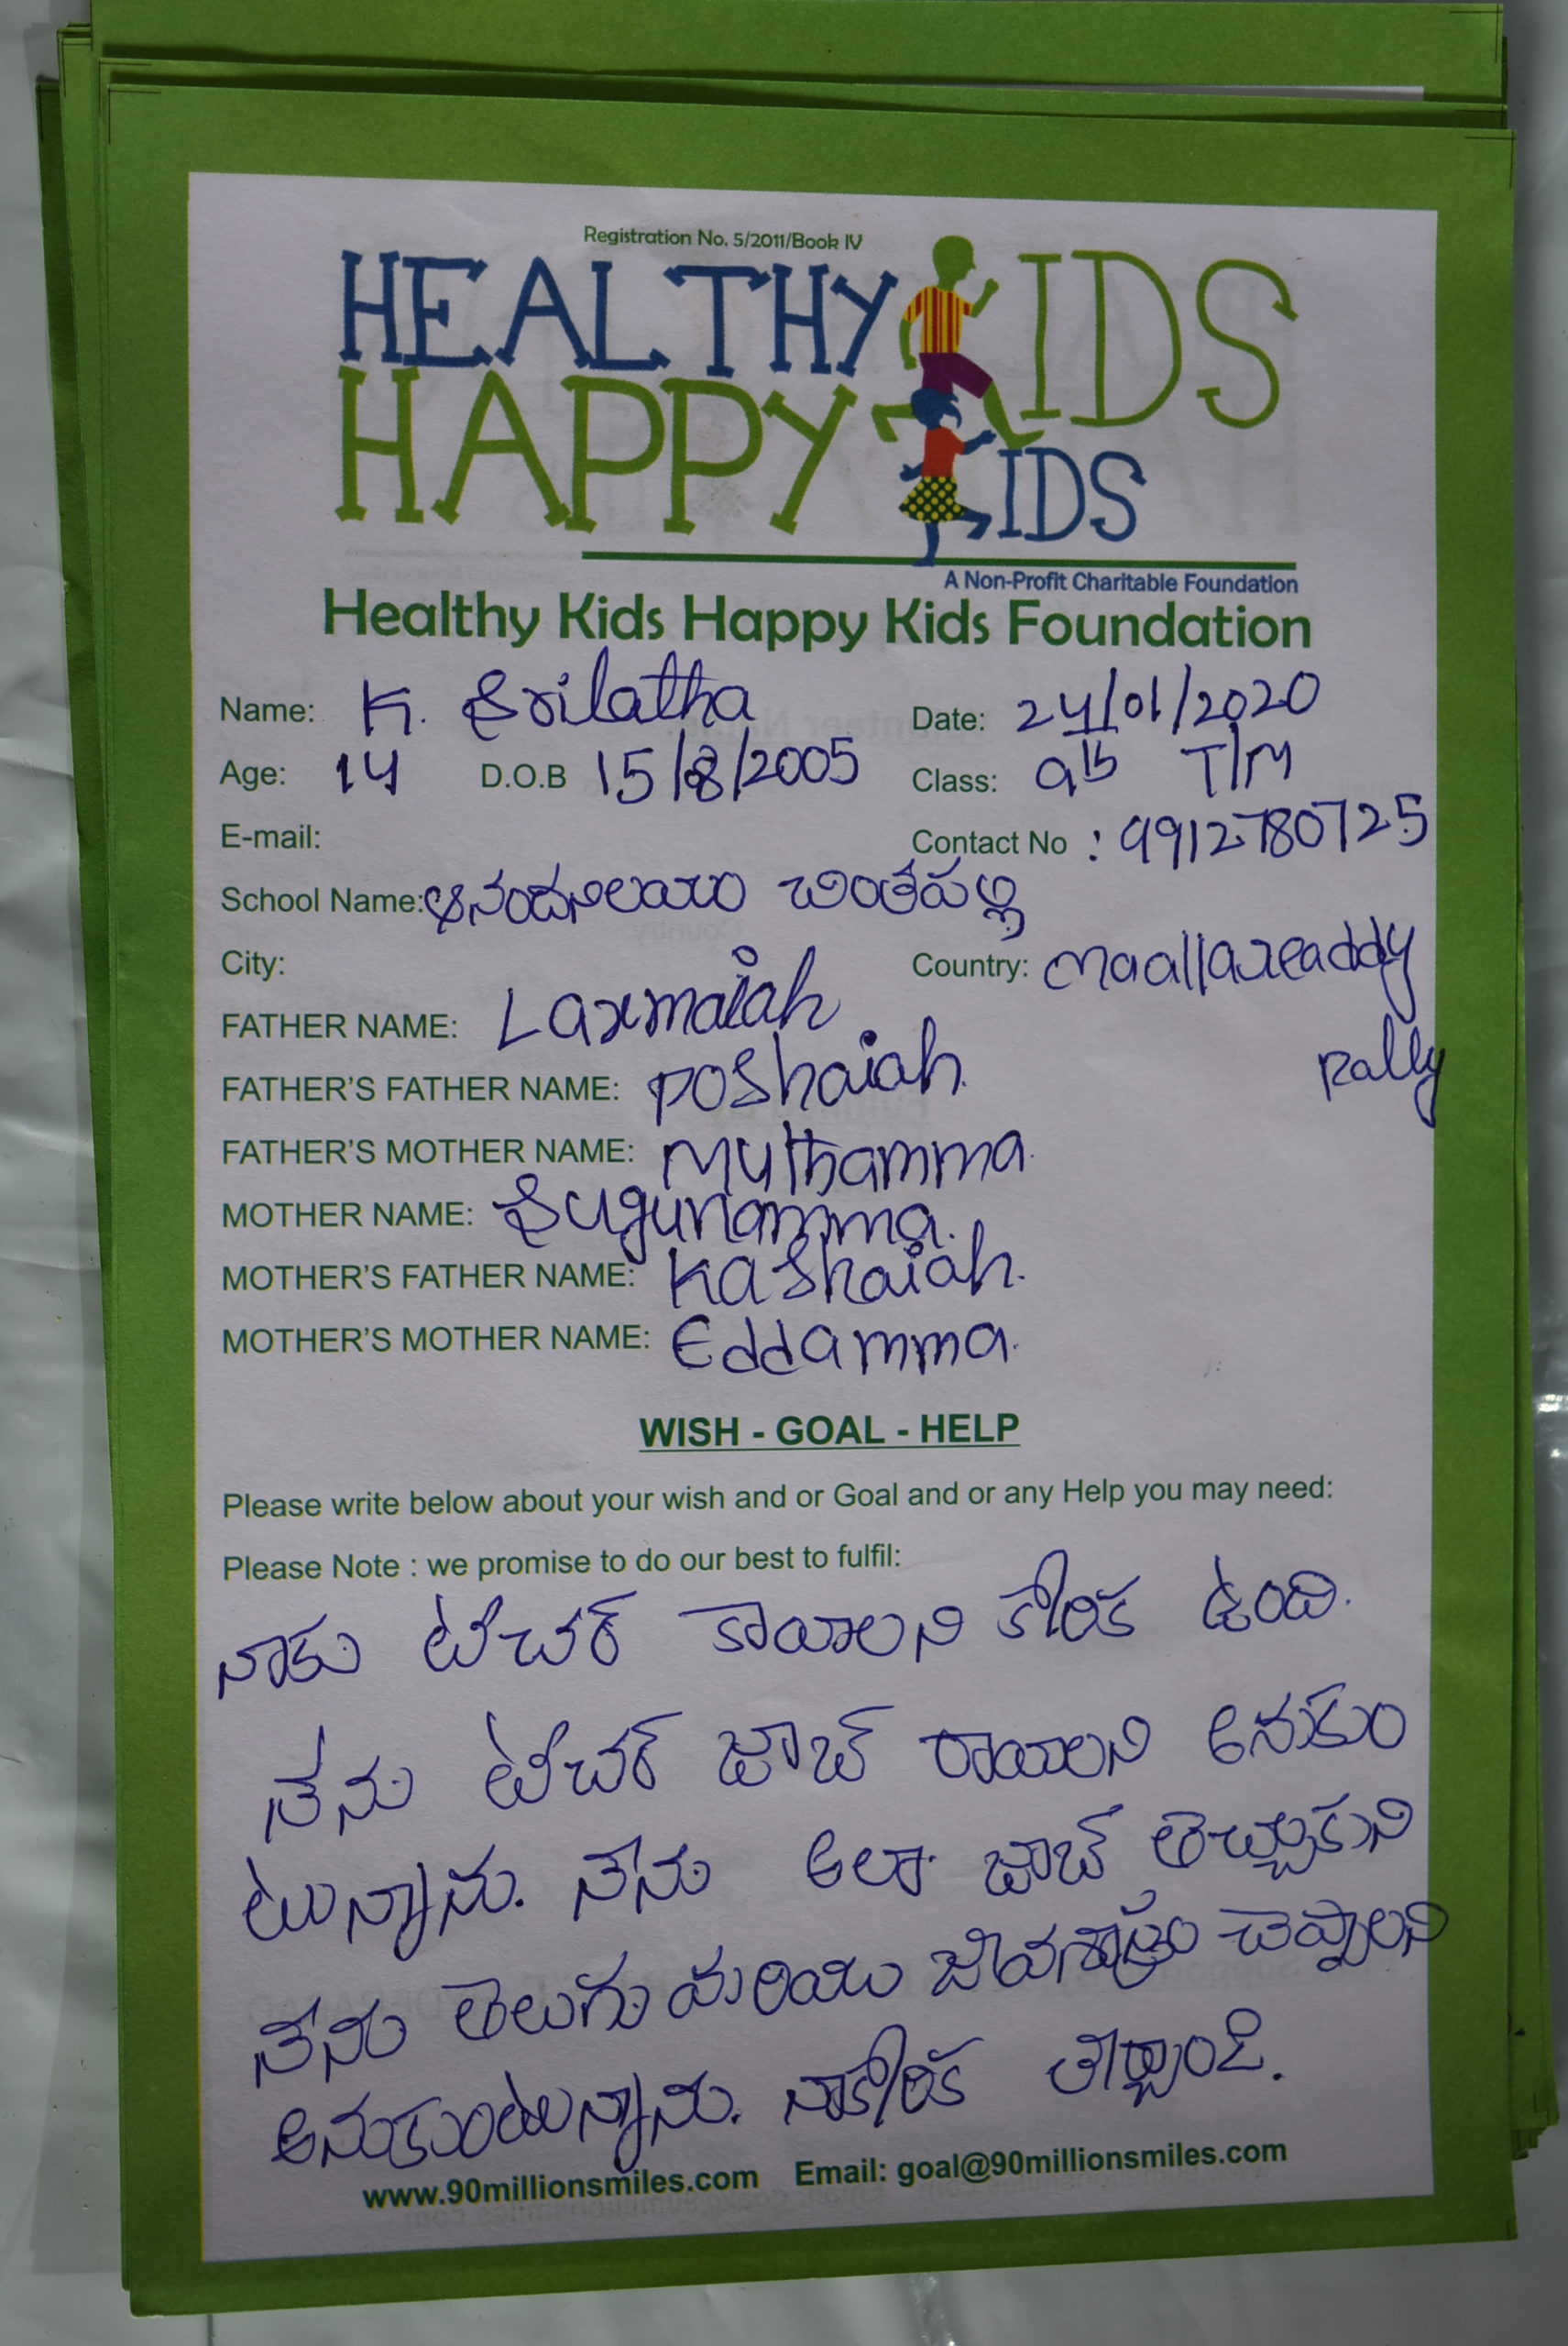 Registration No. 5/2011/Book IV
HEALTHY KIDS
HAPPY KIDS
A Non-Profit Charitable Foundation
Healthy Kids Happy Kids Foundation
Name: K. Srilatha Date: 24/01/2020
Age: 14 D.O.B 15/8/2005 Class: 9th T/M
E-mail: Contact No : 9912780725
School Name: ఆనందనిలయం చింతపల్లి
City: Country: maallareaddy
FATHER NAME: Laxmaiah
pally
FATHER'S FATHER NAME: poshaiah.
FATHER'S MOTHER NAME: Muthamma.
MOTHER NAME: Sugunamma.
MOTHER'S FATHER NAME: Kashaiah.
MOTHER'S MOTHER NAME: Eddamma.
WISH - GOAL - HELP
Please write below about your wish and or Goal and or any Help you may need:
Please Note : we promise to do our best to fulfil:
నాకు టీచర్ కావాలని కోరిక ఉంది.
నేను టీచర్ జాబ్ రావాలని అనుకుం
టున్నాను. నేను అలా జాబ్ తెచ్చుకుని
నేను తెలుగు మరియు జీవశాస్త్రం చెప్పాలని
అనుకుంటున్నాను. నాకోరిక తీర్చండి.
www.90millionsmiles.com Email: goal@90millionsmiles.com